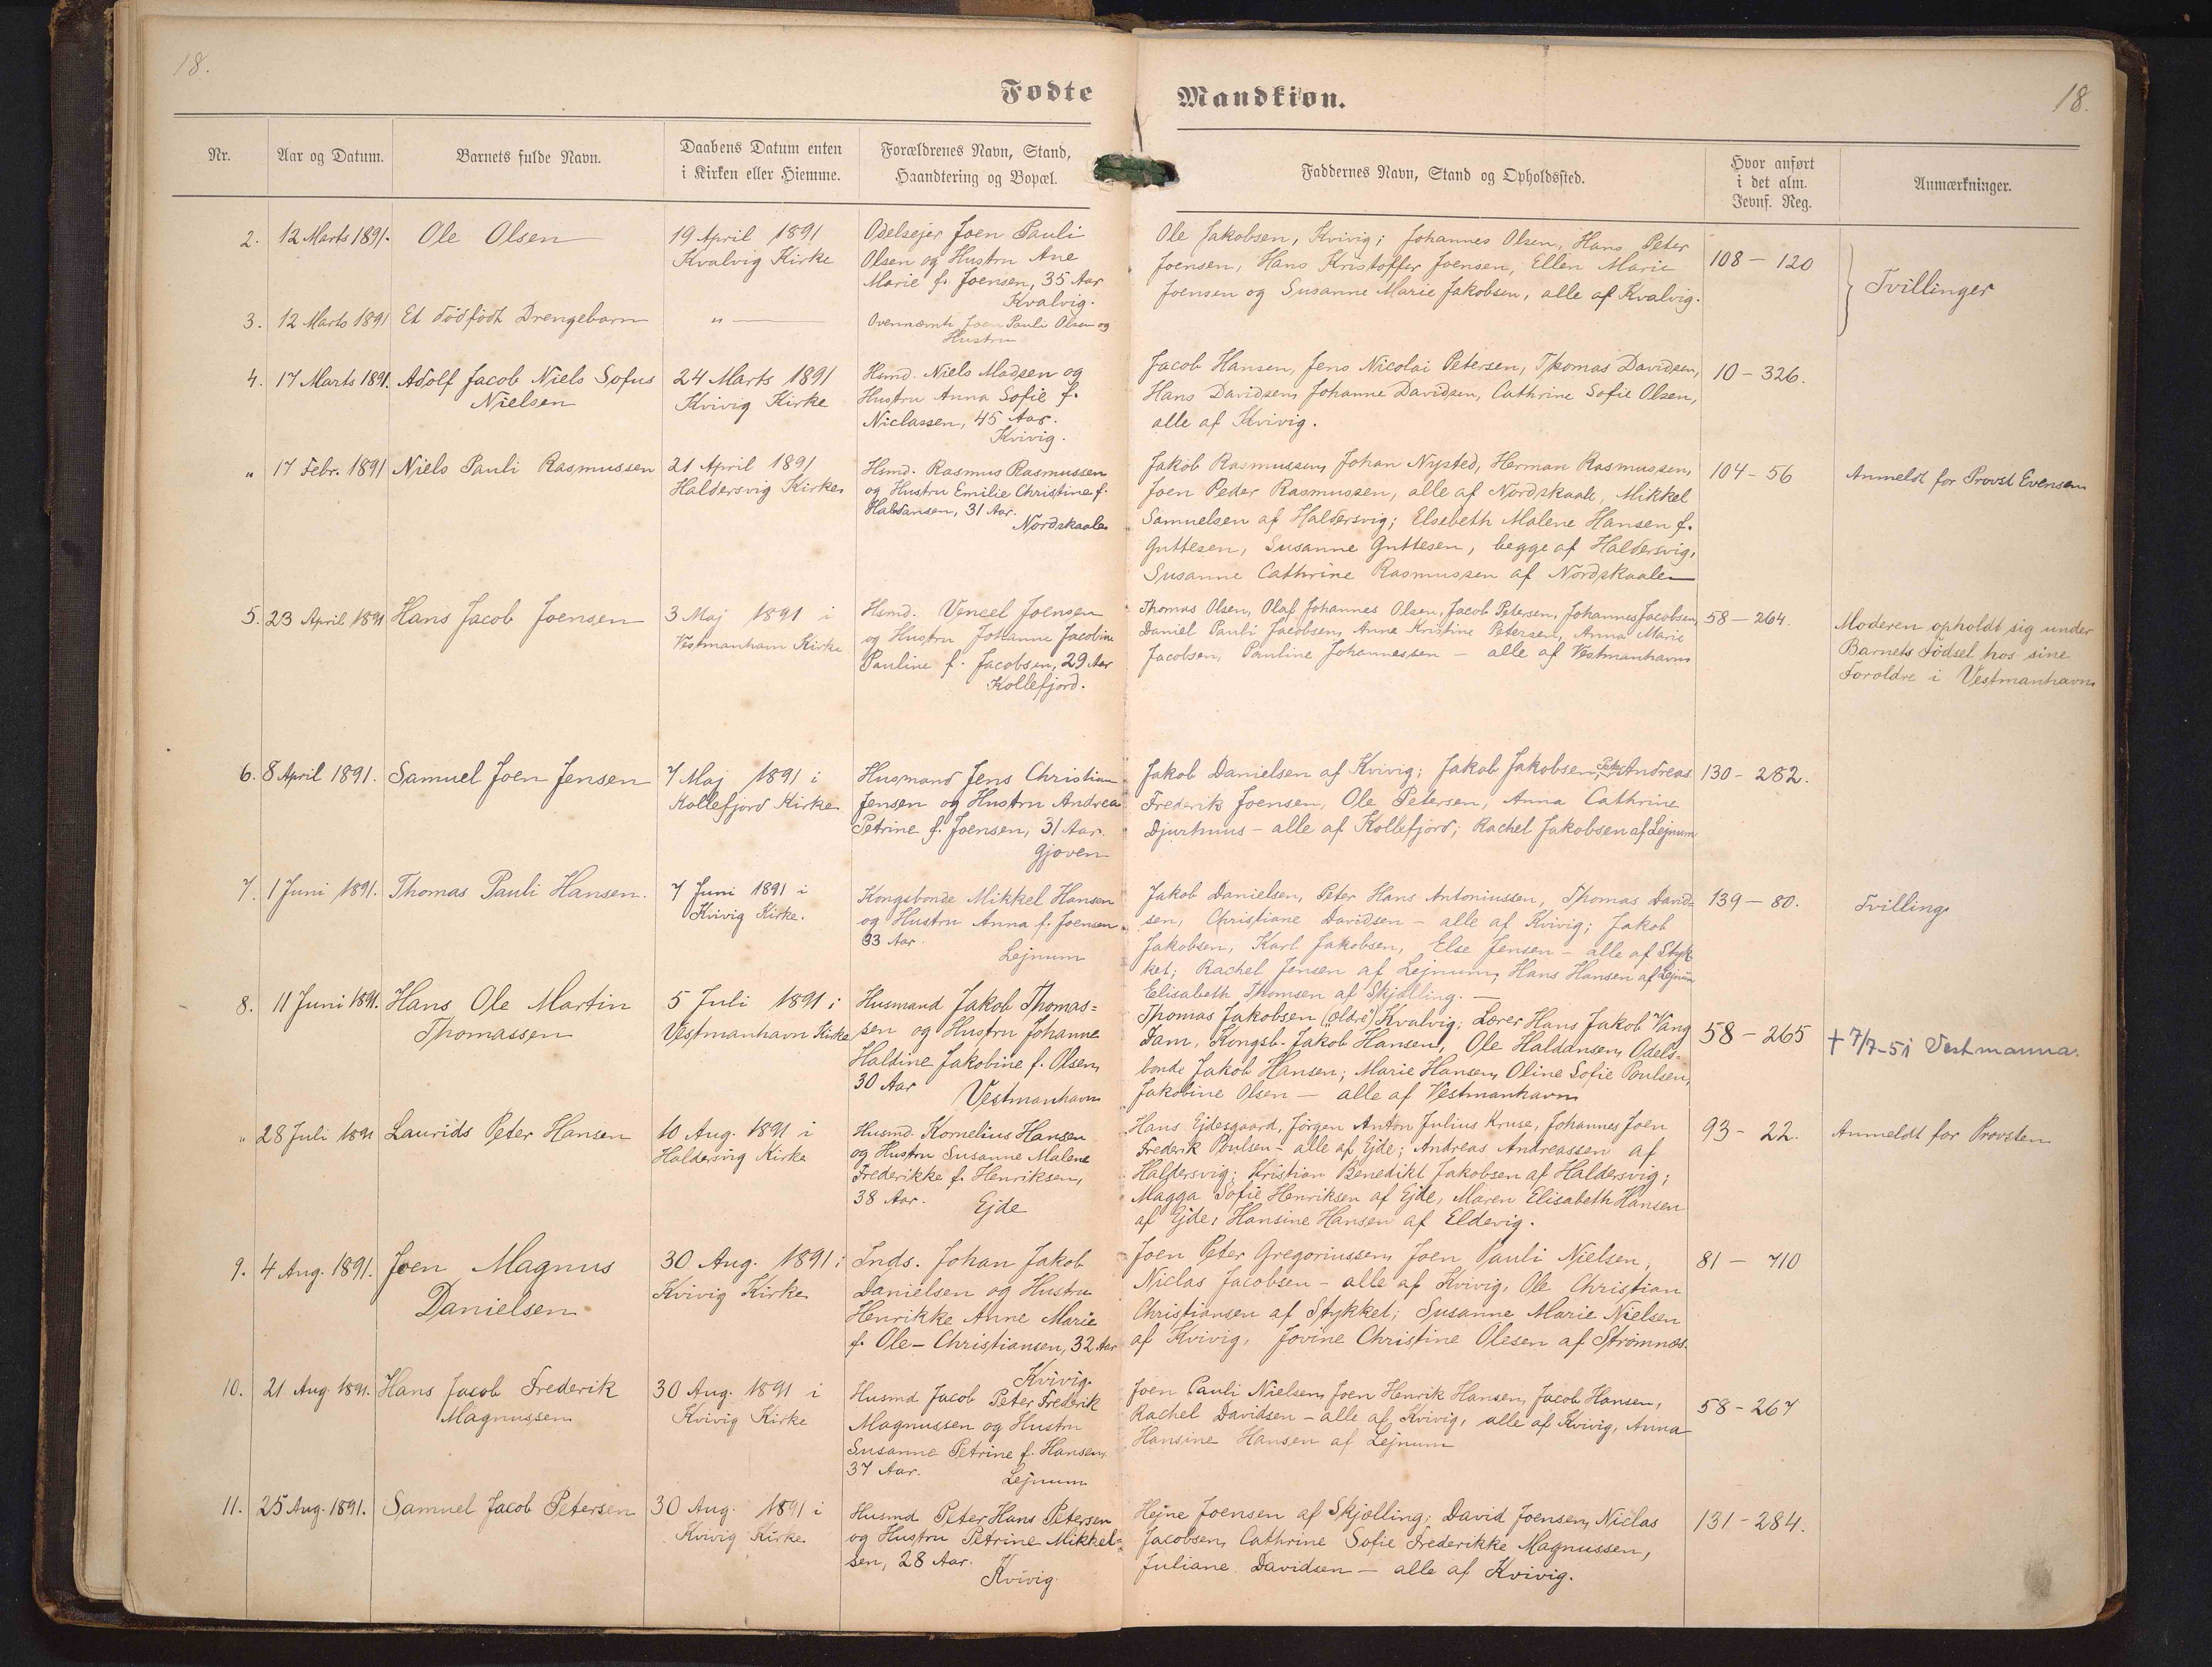 18.
Fødte
Mandkiøn.
18.
Nr.
Aar og Datum.
Barnets fulde Navn.
Daabens Datum enten
i Kirken eller Hiemme.
Forældrenes Navn, Stand,
Haandtering og Bopæl.
Faddernes Navn, Stand og Opholdssted.
Hvor anført
i det alm.
Jevnf. Reg.
Anmærkninger.
2.
12 Marts 1891.
Ole Olsen
19 April 1891
Kvalvig Kirke
Odelsejer Joen Pauli
Olsen og Hustru Ane
Marie f. Joensen, 35 Aar
Kvalvig.
Ole Jakobsen, Kvivig; Johannes Olsen, Hans Peter
Joensen, Hans Kristoffer Joensen, Ellen Marie
Joensen og Susanne Marie Jakobsen, alle af Kvalvig.
108 - 120
Tvillinger
3.
12 Marts 1891
Et dødfødt Drengebarn
" —
Ovennævnte Joen Pauli Olsen og
Hustru
4.
17 Marts 1891.
Adolf Jacob Niels Sofus
Nielsen
24 Marts 1891
Kvivig Kirke
Hsmd. Niels Madsen og
Hustru Anna Sofie f.
Niclassen, 45 Aar.
Kvivig.
Jacob Hansen, Jens Nicolai Petersen, Thomas Davidsen,
Hans Davidsen, Johanne Davidsen, Cathrine Sofie Olsen,
alle af Kvivig.
10 - 326.
"
17 Febr. 1891
Niels Pauli Rasmussen
21 April 1891
Haldersvig Kirke
Hsmd. Rasmus Rasmussen
og Hustru Emilie Christine f.
Habdansen, 31 Aar.
Nordskaale
Jakob Rasmussen, Johan Nysted, Herman Rasmussen,
Joen Peder Rasmussen, alle af Nordskaale, Mikkel
Samuelsen af Haldersvig; Elsebeth Malene Hansen f.
Guttesen, Susanne Guttesen, begge af Haldersvig,
Susanne Cathrine Rasmussen af Nordskaale
104 - 56
Anmeldt for Provst Evensen
5.
23 April 1891
Hans Jacob Joensen
3 Maj 1891 i
Vestmanhavn Kirke
Hsmd. Vencel Joensen
og Hustru Johanne Jacobine
Pauline f. Jacobsen, 29 Aar
Kollefjord.
Thomas Olsen, Olaf Johannes Olsen, Jacob Petersen, Johannes Jacobsen
Daniel Pauli Jacobsen, Anne Kristine Petersen, Anna Marie
Jacobsen, Pauline Johannessen - alle af Vestmanhavn
58 - 264.
Moderen opholdt sig under
Barnets Fødsel hos sine
Foroldre i Vestmanhavn
6.
8 April 1891.
Samuel Joen Jensen
7 Maj 1891 i
Kollefjord Kirke
Husmand Jens Christian
Jensen og Hustru Andrea
Petrine f. Joensen, 31 Aar.
Gjoven
Jakob Danielsen af Kvivig; Jakob Jakobsen, Peter Andreas
Frederik Joensen, Ole Petersen, Anna Cathrine
Djurhuus - alle af Kollefjord; Rachel Jakobsen af Lejnum
130 - 282.
7.
1 Juni 1891.
Thomas Pauli Hansen.
7 Juni 1891 i
Kvivig Kirke.
Kongsbonde Mikkel Hansen
og Hustru Anna f. Joensen
33 Aar.
Lejnum
Jakob Danielsen, Peter Hans Antoniussen, Thomas David=
sen, Christiane Davidsen - alle af Kvivig; Jakob
Jakobsen, Karl Jakobsen, Else Jensen - alle af Styk
ket; Rachel Jensen af Lejnum, Hans Hansen af Lejnum
Elisabeth Thomsen af Skjælling. —
139 - 80.
Tvilling
8.
11 Juni 1891.
Hans Ole Martin
Thomassen
5 Juli 1891 i
Vestmanhavn Kirke
Husmand Jakob Thomas=
sen og Hustru Johanne
Haldine Jakobine f. Olsen,
30 Aar
Vestmanhavn
Thomas Jakobsen (oldre) Kvalvig; Lærer Hans Jakob Vang
Fam, Kongsb. Jakob Hansen, Ole Haldansen, Odels-
bonde Jakob Hansen; Marie Hansen, Oline Sofie Poulsen,
Jakobine Olsen - alle af Vestmanhavn
58 - 265
+ 7/7-51 Vestmanna.
"
28 Juli 1891
Laurids Peter Hansen
10 Aug. 1891 i
Haldersvig Kirke
Husmd. Kornelius Hansen
og Hustru Susanne Malene
Frederikke f. Henriksen,
38 Aar.
Ejde
Hans Ejdesgaard, Jørgen Anton Julius Kruse, Johannes Joen
Frederik Poulsen - alle af Ejde; Andreas Andreassen af
Haldersvig; Kristian Benedikt Jakobsen af Haldersvig;
Magga Sofie Henriksen af Ejde, Maren Elisabeth Hansen
af Ejde, Hansine Hansen af Eldevig.
93 - 22.
Anmeldt for Provsten
9.
4 Aug. 1891.
Joen Magnus
Danielsen
30 Aug. 1891 i
Kvivig Kirke
Inds. Johan Jakob
Danielsen og Hustru
Henrikke Anne Marie
f. Ole-Christiansen, 32 Aar
Kvivig.
Joen Peter Gregoriussen, Joen Pauli Nielsen,
Niclas Jacobsen - alle af Kvivig, Ole Christian
Christiansen af Stykket; Susanne Marie Nielsen
af Kvivig, Jovine Christine Olesen af Strømnæs.
81 - 710
10.
21 Aug. 1891.
Hans Jacob Frederik
Magnussen
30 Aug. 1891 i
Kvivig Kirke
Husmd Jacob Peter Frederik
Magnussen og Hustru
Susanne Petrine f. Hansen,
37 Aar.
Lejnum
Joen Pauli Nielsen, Joen Henrik Hansen, Jacob Hansen,
Rachel Davidsen - alle af Kvivig, alle af Kvivig, Anna
Hansine Hansen af Lejnum
58 - 267
11.
25 Aug. 1891.
Samuel Jacob Petersen
30 Aug. 1891 i
Kvivig Kirke
Husmd Peter Hans Petersen
og Hustru Petrine Mikkel=
sen, 28 Aar.
Kvivig.
Hejne Joensen af Skjælling; David Joensen, Niclas
Jacobsen, Cathrine Sofie Frederikke Magnussen,
Juliane Davidsen - alle af Kvivig.
131 - 284.